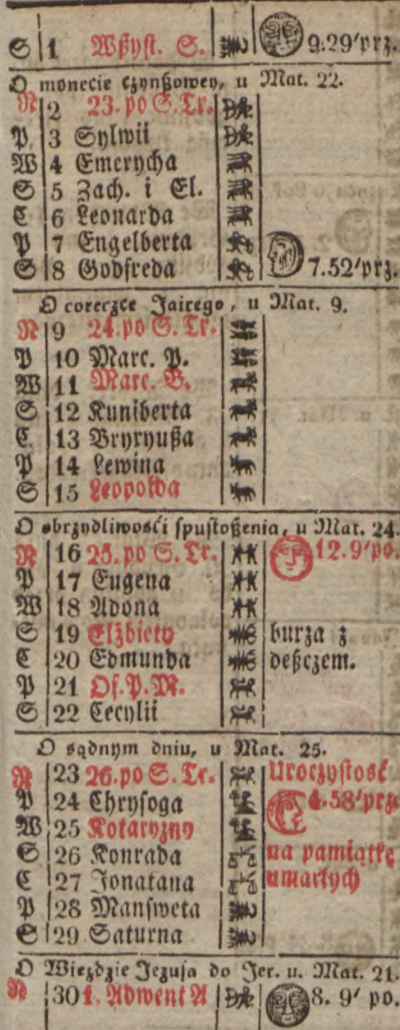 S 1 Wßyst. S. 9.29'prz.
O monecie czynßowey, u Mat. 22.
N 2 23. po S. Tr.
P 3 Sylwii
W 4 Emerycha
S 5 Zach. i El.
C 6 Leonarda
P 7 Engelberta
S 8 Godfreda 7.52'prz.
O coreczce Jairego, u Mat. 9.
N 9 24. po S. Tr.
P 10 Marc. P.
W 11 Marc. B.
S 12 Kuniberta
C 13 Bryxyußa
P 14 Lewina
S 15 Leopolda
O obrzydliwości spustoßenia, u Mat. 24.
N 16 25. po S. Tr. 12.9'po.
P 17 Eugena
W 18 Adona
S 19 Elżbiety burza z
C 20 Edmunda deßczem.
P 21 Of. P. M.
S 22 Cecylii
O sądnym dniu, u Mat. 25.
N 23 26. po S. Tr. Uroczystość
P 24 Chrysoga 4.58'prz.
W 25 Katarzyny
S 26 Konrada na pamiątkę
C 27 Jonatana umarłych
P 28 Mansweta
S 29 Saturna
O Wiezdzie Jezusa do Jer. u. Mat. 21.
N 30 1. Adwent A 8. 9' po.